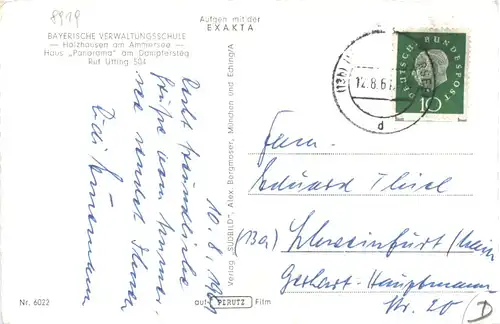 8919
BAYERISCHE VERWALTUNGSSCHULE
— Holzhausen am Ammersee —
Haus „Panorama" am Dampfersteg
Ruf Utting 504
Aufgen. mit der
EXAKTA
DEUTSCHE BUNDESPOST
10
12.8.61
d
10. 8. 1961
Recht freundliche
Grüße vom Ammer-
see sendet Ihnen
Verlag „SÜDBILD", Alex. Bergmoser, München und Eching/A
Herrn
Eduard Thiel
(13a) Schweinfurt/Main
Gerhart-Hauptmann-
Str. 20
D
Nr. 6022
auf PERUTZ Film